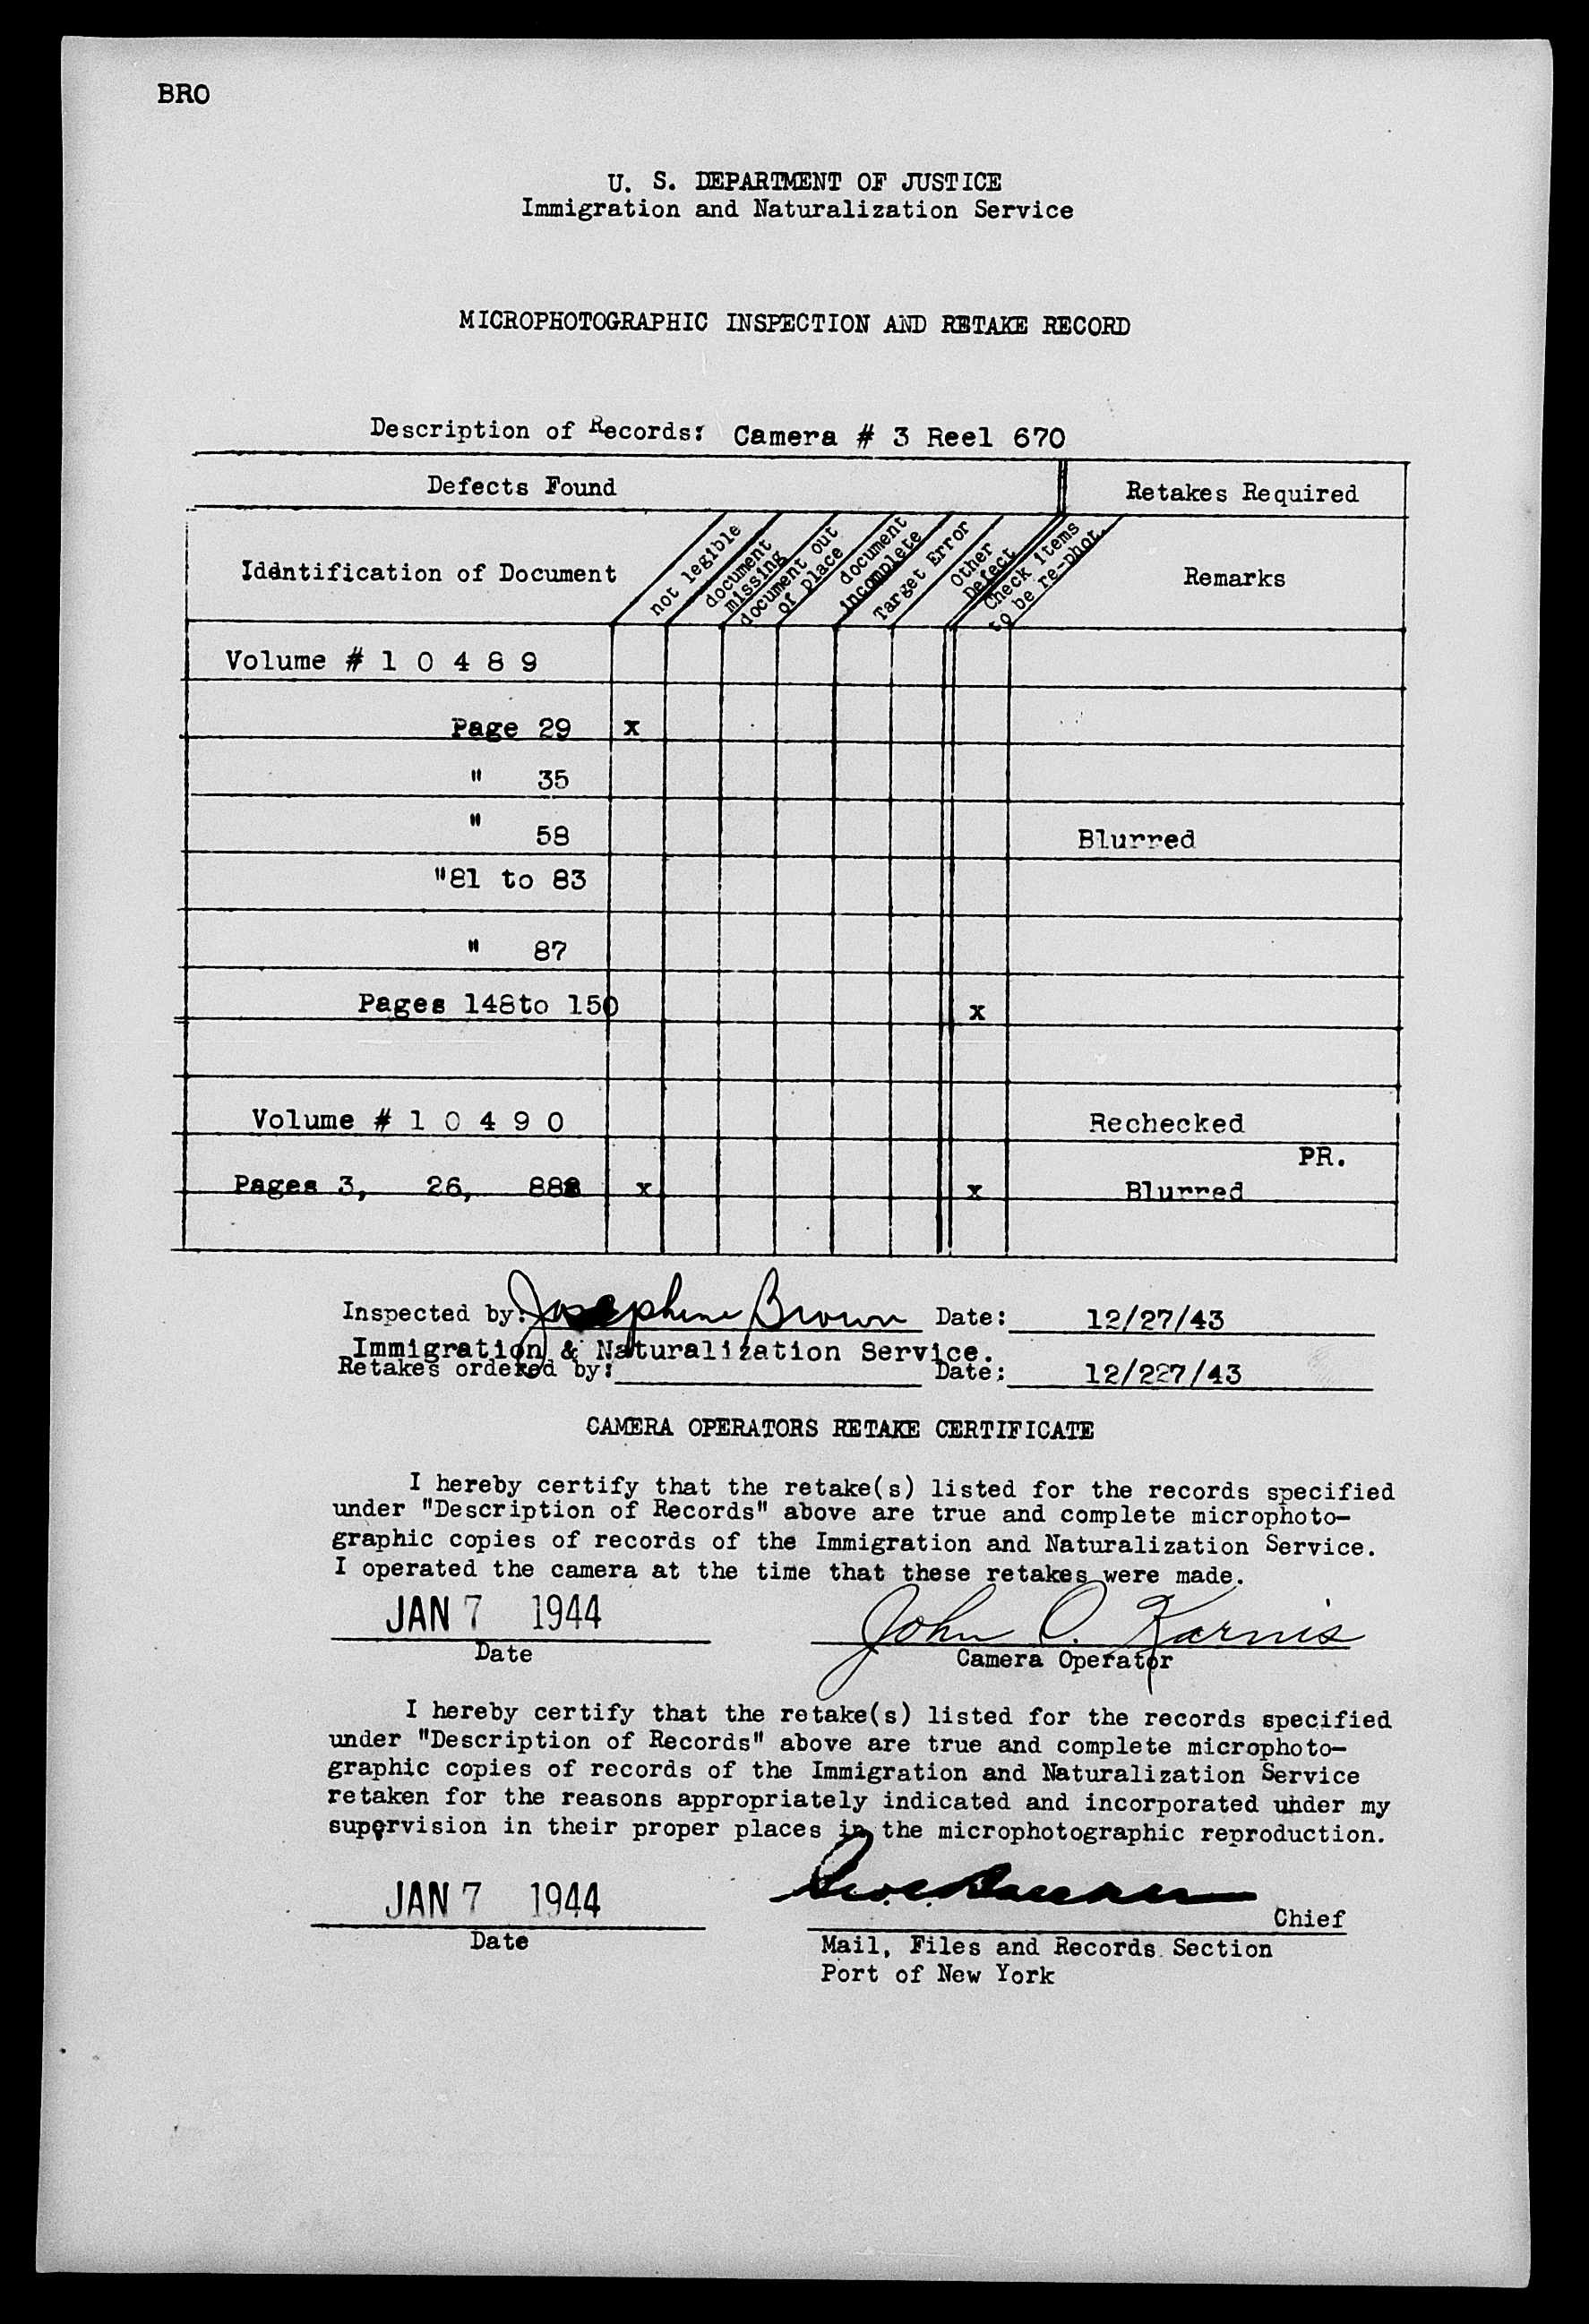 BRO
U. S. DEPARTMENT OF JUSTICE
Immigration and Naturalization Service
MICROPHOTOGRAPHIC INSPECTION AND RETAKE RECORD
Description of Records: Camera # 3 Reel 670
Defects Found Retakes Required
Idantification of Document
not legible
document missing
document out of place
document incomplete
Target Error
Other Defect
Check items to be re-phot.
Remarks
Volume # 1 0 4 8 9
Page 29 x
" 35
" 58 Blurred
"81 to 83
" 87
Pages 148to 150 x
Volume # 1 0 4 9 0 Rechecked
PR.
Pages 3, 26, 88 x x Blurred
Inspected by: Josephine Brown Date: 12/27/43
Immigration & Naturalization Service.
Retakes ordered by: Date: 12/227/43
CAMERA OPERATORS RETAKE CERTIFICATE
I hereby certify that the retake(s) listed for the records specified
under "Description of Records" above are true and complete microphoto-
graphic copies of records of the Immigration and Naturalization Service.
I operated the camera at the time that these retakes were made.
JAN 7 1944 John O. Karnis
Date Camera Operator
I hereby certify that the retake(s) listed for the records specified
under "Description of Records" above are true and complete microphoto-
graphic copies of records of the Immigration and Naturalization Service
retaken for the reasons appropriately indicated and incorporated under my
supervision in their proper places in the microphotographic reproduction.
JAN 7 1944
Chief
Date Mail, Files and Records Section
Port of New York